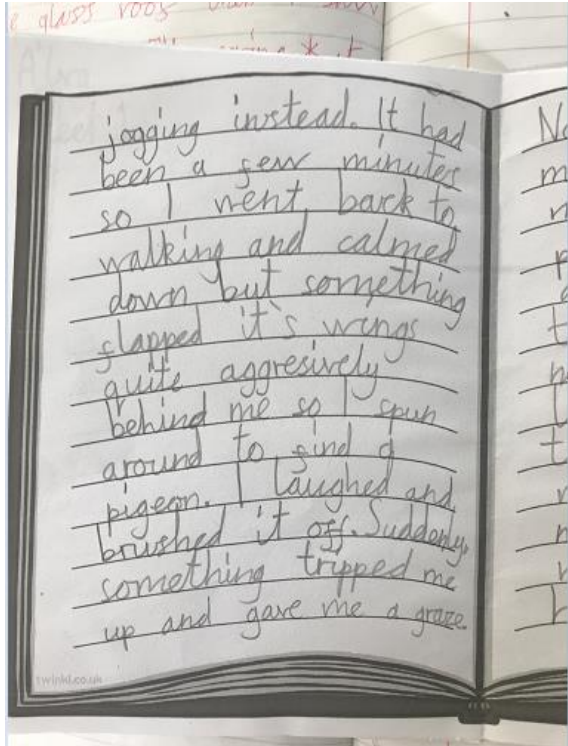 e glass roof when I
jogging instead. It had
been a few minutes
so I went back to
walking and calmed
down but something
flapped it's wings
quite aggresively
behind me so I spun
around to find a
pigeon. I laughed and
brushed it off. Suddenly,
something tripped me
up and gave me a graze.
twinkl.co.uk